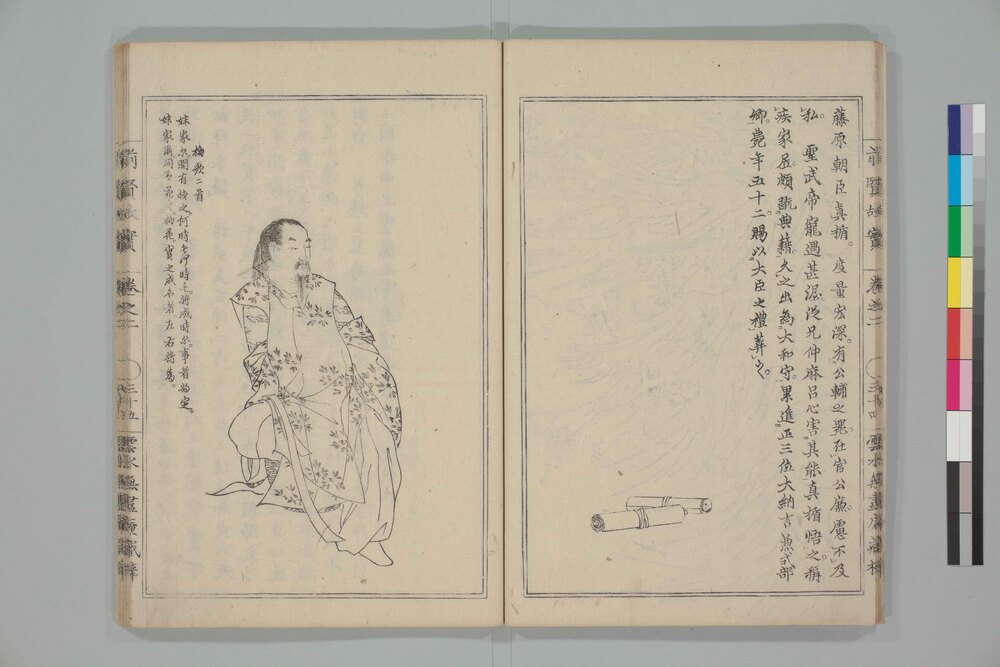 藤原朝臣真楯。度量宏深。有公輔之器。在官公廉。慮不及
私。聖武帝寵遇甚渥。從兄仲麻呂心害其能。真楯悟之。稱
疾家居。頗翫典藉。久之出為大和守。累進正三位大納言兼式部
卿。薨年五十二。賜以大臣之禮葬之。
前賢故實
卷之二
三十四
梅歌二首
妹家尓開有梅之何時毛何時毛將成時尓事者將定。
妹家尓開有花之梅花實之成名者左右將為。
前賢故實
卷之二
三十五
雲水無盡庵藏梓